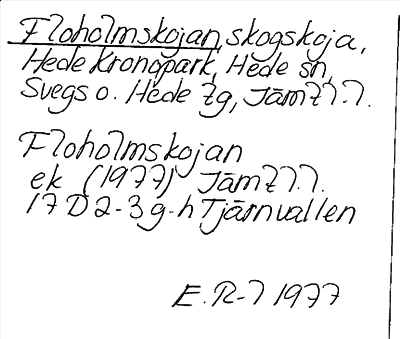 Floholmskojan, skogskoja,
Hede kronopark, Hede sn,
Svegs o. Hede tg, Jämtl.l.
Floholmskojan
ek (1977) Jämtl.l.
17D2-3g-h Tjärnvallen
E.R-l 1977